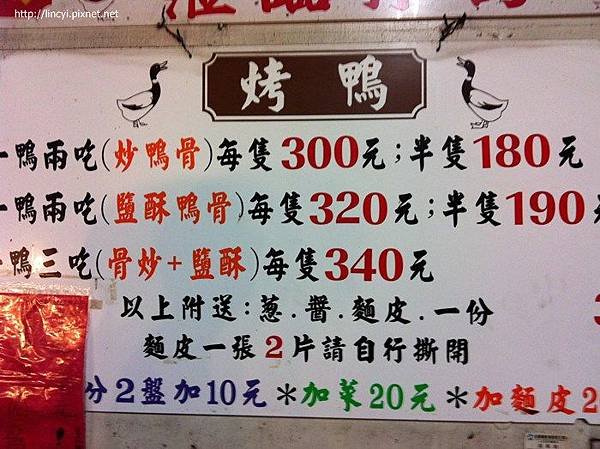 http://lincyi.pixnet.net
烤鴨
一鴨兩吃(炒鴨骨)每隻300元;半隻180元
一鴨兩吃(鹽酥鴨骨)每隻320元;半隻190元
鴨三吃(骨炒+鹽酥)每隻340元
以上附送:蔥.醬.麵皮.一份
麵皮一張2片請自行撕開
分2盤加10元＊加菜20元＊加麵皮2